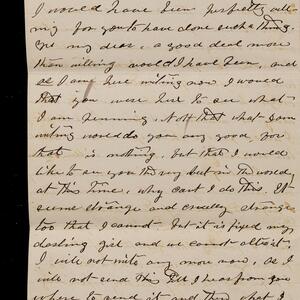 I would have been perfectly will
ing for you to have done such a thing.
Yes my dear, a good deal more
than willing would I have been, and
as I am here writing now I would
that you were here to see what
I am penning. Not that what I am
writing would do you any good for
that is nothing. but that I would
like to see you the say but in the world
at this time, why cant I do this. It
seems strange and cruelly strange
too that I cannot. but it is fixed my
darling girl and we cannot alter it.
I will not write any more now, as I
will not send this till I hear from you
where to send it and then what I